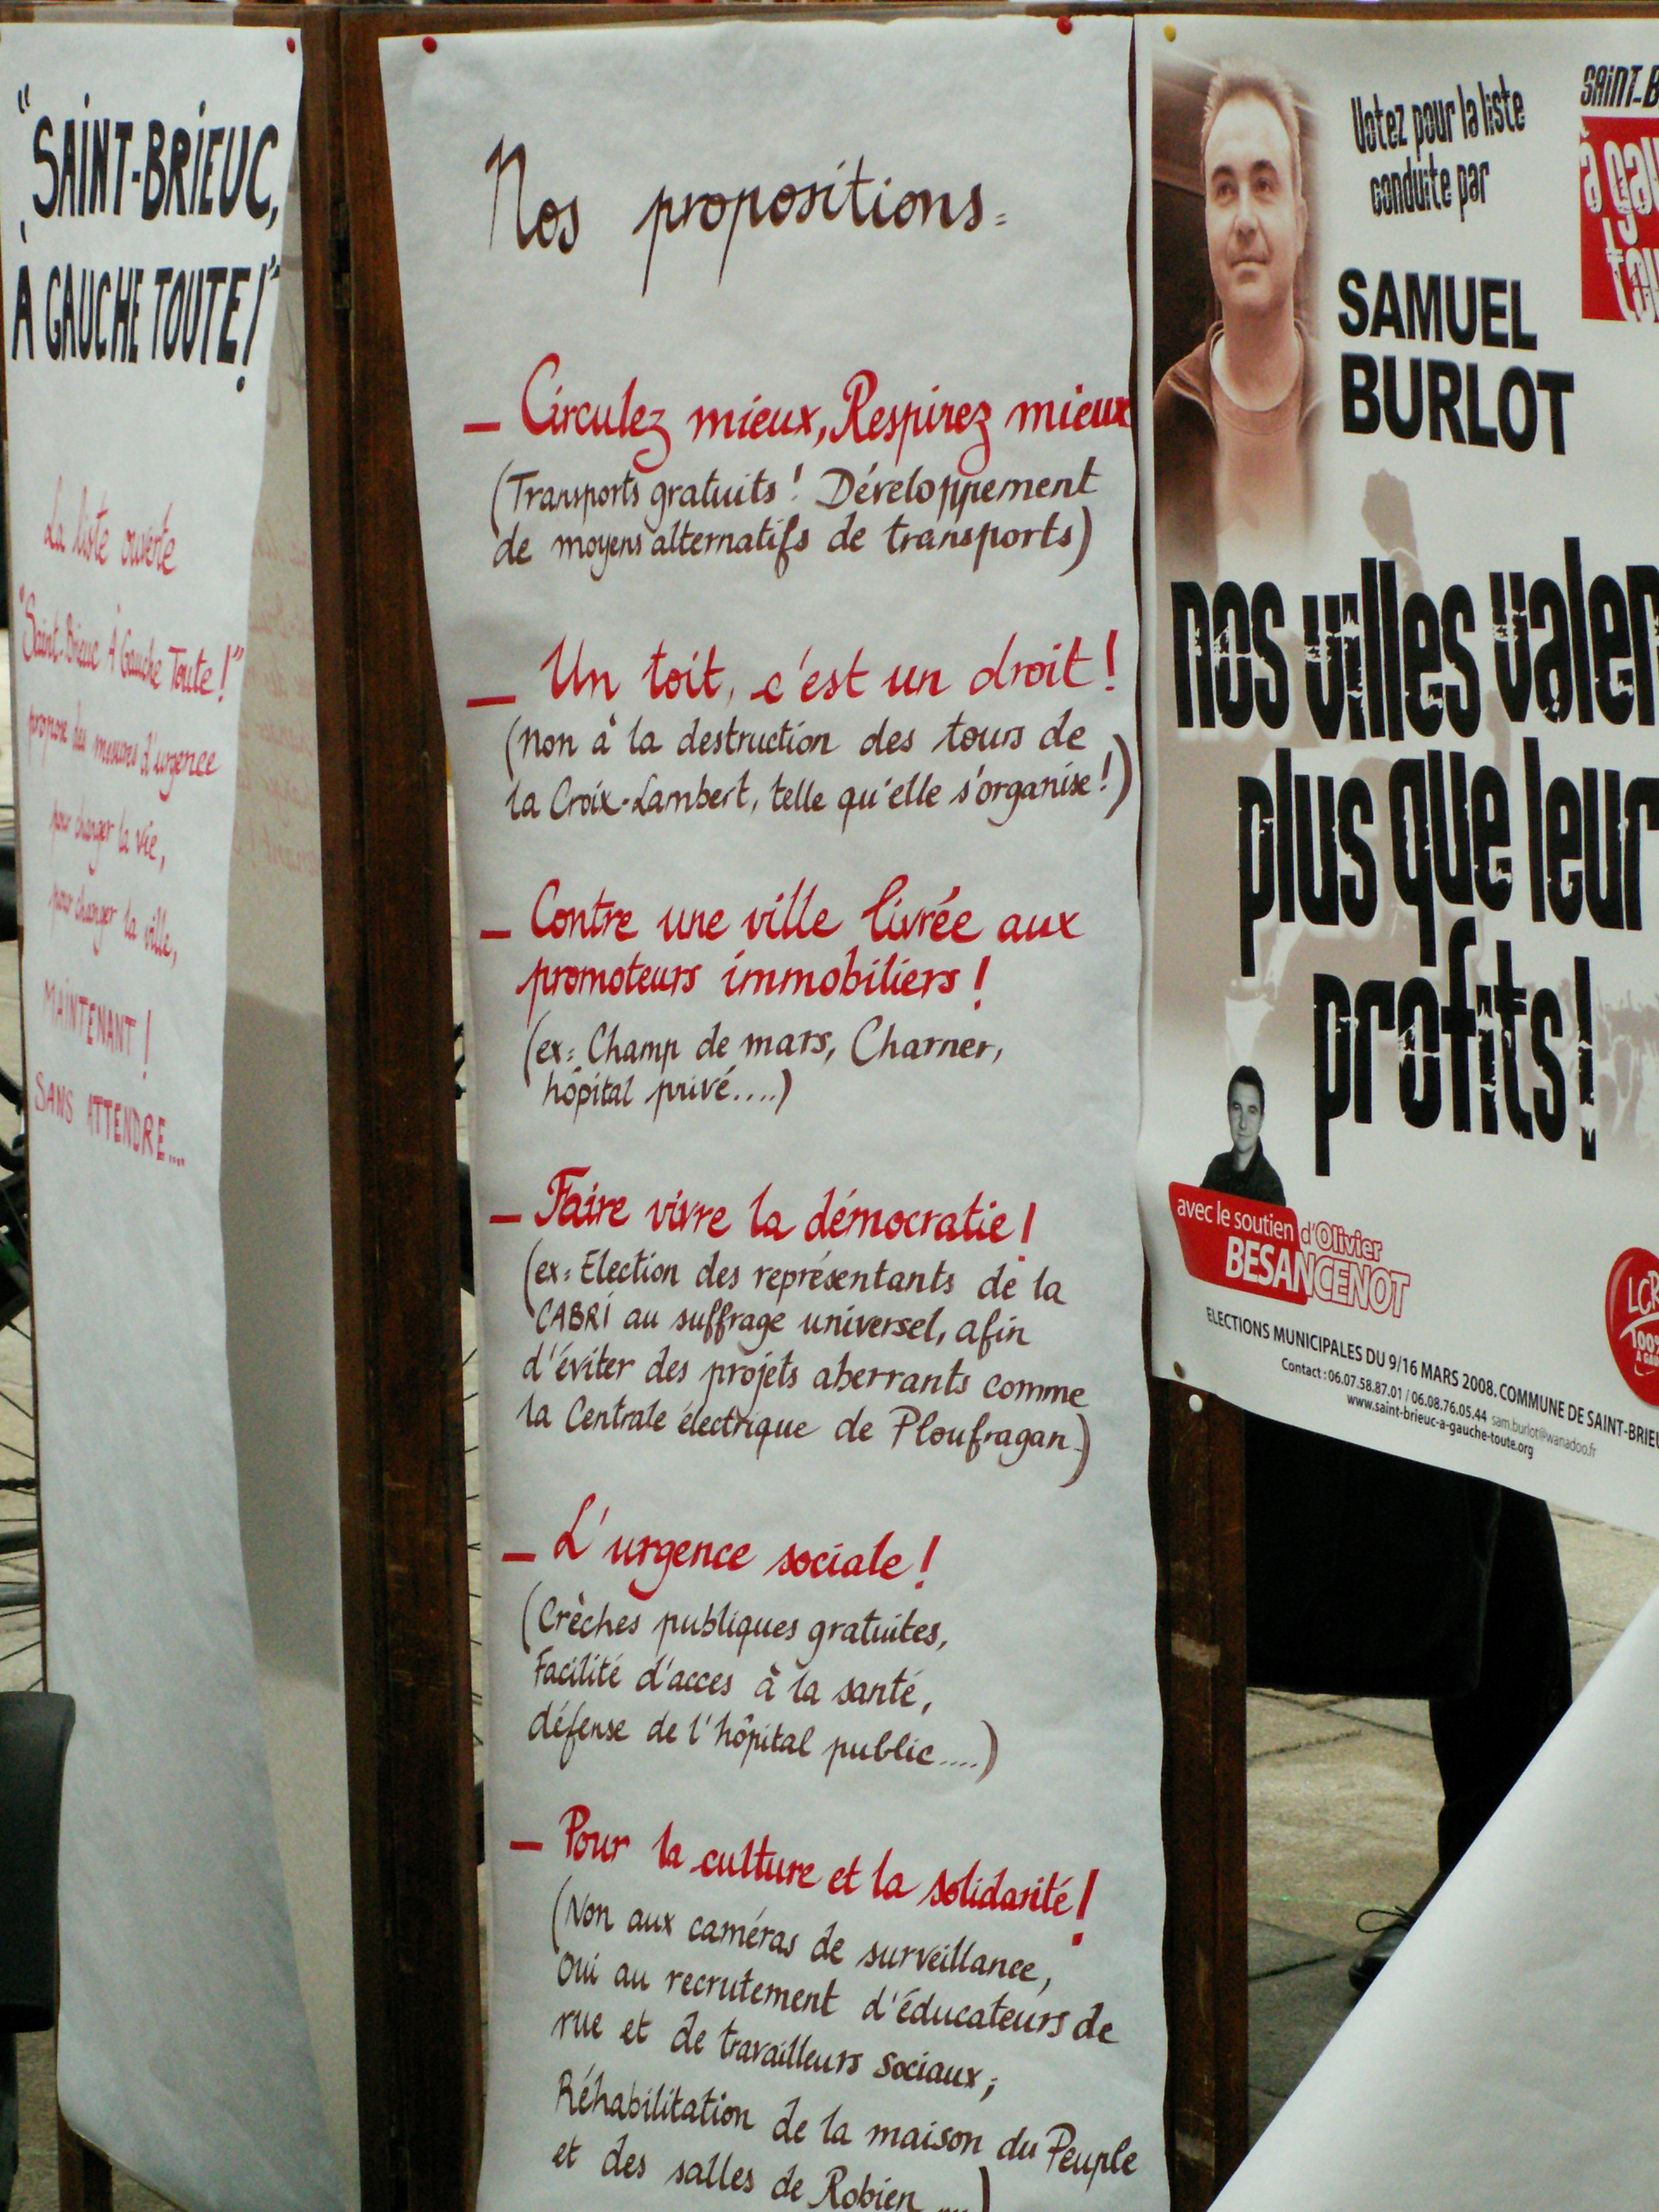 "SAINT-BRIEUC,
À GAUCHE TOUTE!"
La liste ouverte
"Saint-Brieuc À Gauche Toute!"
propose des mesures d'urgence
pour changer la vie,
pour changer la ville,
MAINTENANT!
SANS ATTENDRE....
Nos propositions:
– Circulez mieux, Respirez mieux
(Transports gratuits! Développement
de moyens alternatifs de transports)
– Un toit, c'est un droit!
(Non à la destruction des tours de
la Croix-Lambert, telle qu'elle s'organise!)
– Contre une ville livrée aux
promoteurs immobiliers!
(ex: Champ de mars, Charner,
hôpital privé....)
– Faire vivre la démocratie!
(ex: Election des représentants de la
CABRI au suffrage universel, afin
d'éviter des projets aberrants comme
la Centrale électrique de Ploufragan)
– L'urgence sociale!
(Crèches publiques gratuites,
Facilité d'acces à la santé,
défense de l'hôpital public.....)
– Pour la culture et la solidarité!
(Non aux caméras de surveillance,
Oui au recrutement d'éducateurs de
rue et de travailleurs sociaux;
Réhabilitation de la maison du Peuple
et des salles de Robien ....)
Votez pour la liste
conduite par
SAMUEL
BURLOT
SAINT-B
à gau
tou
nos villes valen
plus que leur
profits!
avec le soutien d'Olivier
BESANCENOT
LCR
100%
À GAU
ELECTIONS MUNICIPALES DU 9/16 MARS 2008. COMMUNE DE SAINT-BRIEU
Contact : 06.07.58.87.01 / 06.08.76.05.44 sam.burlot@wanadoo.fr
www.saint-brieuc-a-gauche-toute.org